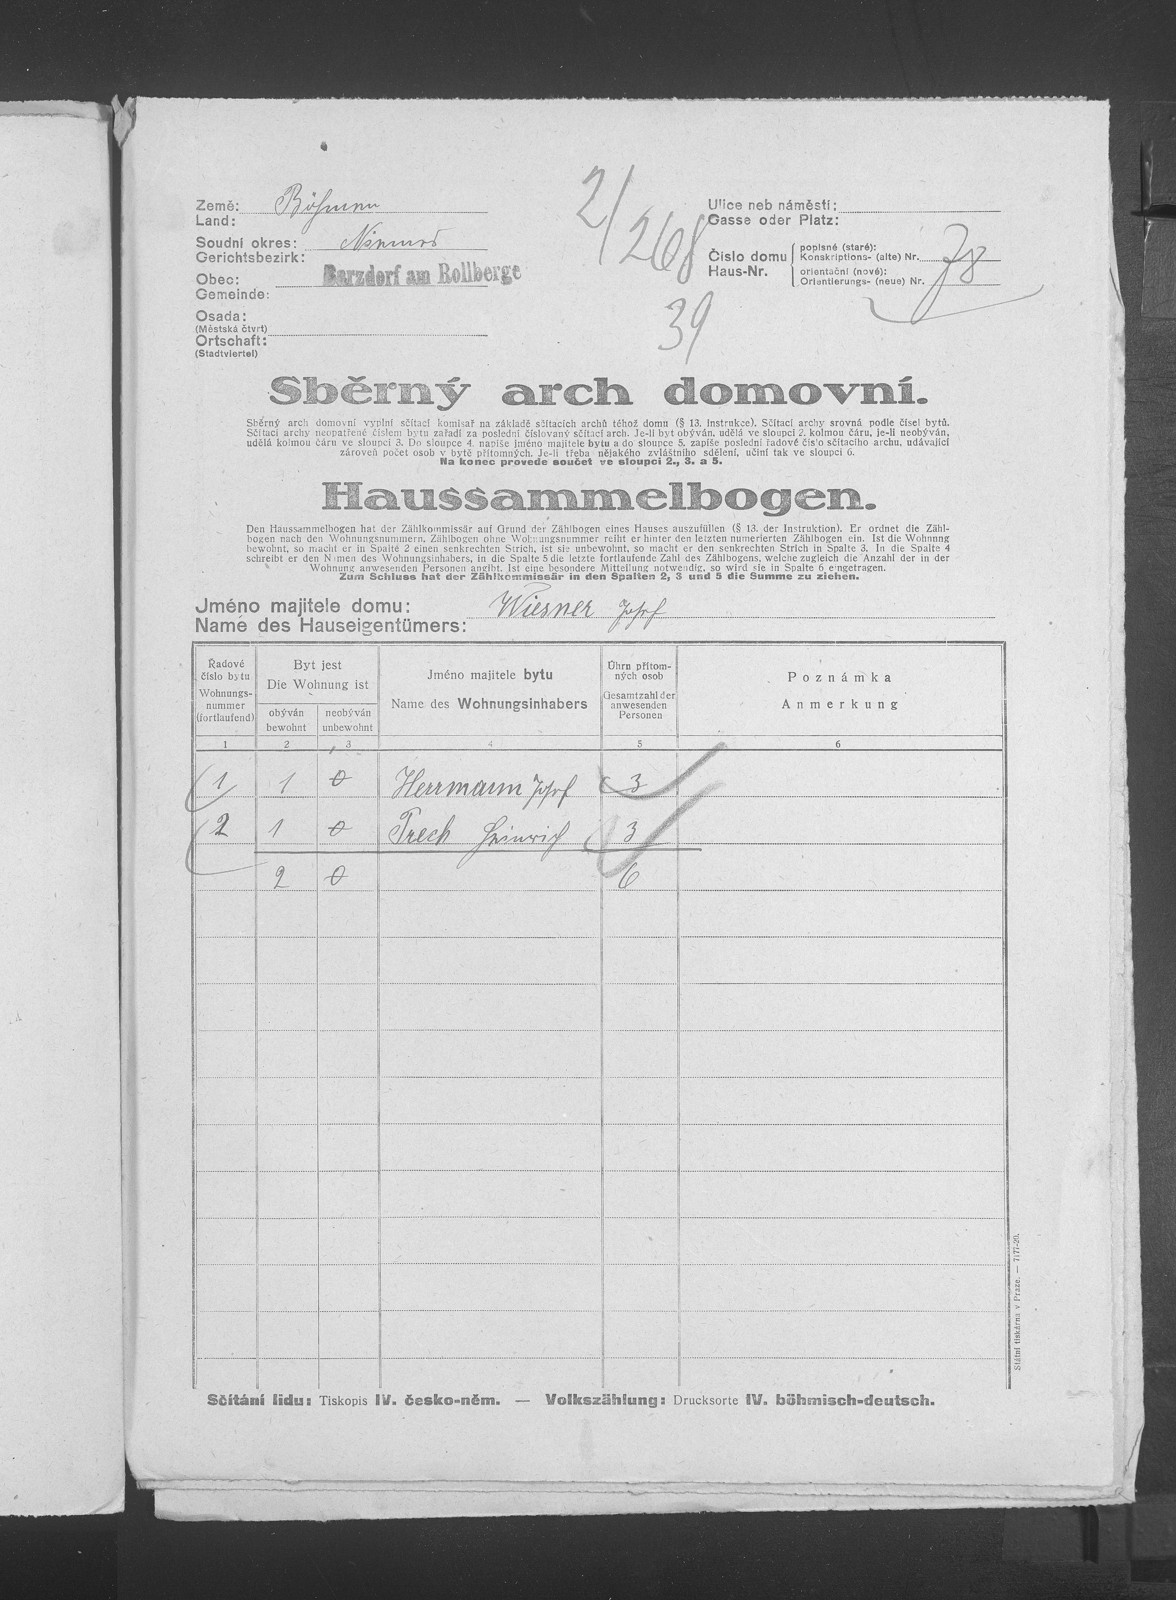 Země:
Land: Böhmen
Soudní okres:
Gerichtsbezirk: Niemes
Obec:
Gemeinde: Barzdorf am Rollberge
Osada:
(Městská čtvrt)
Ortschaft:
(Stadtviertel)
2/268
39
Ulice neb náměstí:
Gasse oder Platz:
Číslo domu
Haus-Nr.
popisné (staré):
Konskriptions- (alte) Nr. 78
orientační (nové):
Orientierungs- (neue) Nr.
Sběrný arch domovní.
Sběrný arch domovní vyplní sčítací komisař na základě sčítacích archů téhož domu (§ 13. Instrukce). Sčítací archy srovná podle čísel bytů.
Sčítací archy neopatřené číslem bytu zařadí za poslední číslovaný sčítací arch. Je-li byt obýván, udělá ve sloupci 2. kolmou čáru, je-li neobýván,
udělá kolmou čáru ve sloupci 3. Do sloupce 4. napíše jméno majitele bytu a do sloupce 5. zapíše poslední řadové číslo sčítacího archu, udávající
zároveň počet osob v bytě přítomných. Je-li třeba nějakého zvláštního sdělení, učiní tak ve sloupci 6.
Na konec provede součet ve sloupci 2., 3. a 5.
Haussammelbogen.
Den Haussammelbogen hat der Zählkommissär auf Grund der Zählbogen eines Hauses auszufüllen (§ 13. der Instruktion). Er ordnet die Zähl-
bogen nach den Wohnungsnummern. Zählbogen ohne Wohnungsnummer reiht er hinter den letzten numerierten Zählbogen ein. Ist die Wohnnng
bewohnt, so macht er in Spalte 2 einen senkrechten Strich, ist sie unbewohnt, so macht er den senkrechten Strich in Spalte 3. In die Spalte 4
schreibt er den Namen des Wohnungsinhabers, in die Spalte 5 die letzte fortlaufende Zahl des Zählbogens, welche zugleich die Anzahl der in der
Wohnung anwesenden Personen angibt. Ist eine besondere Mitteilung notwendig, so wird sie in Spalte 6 eingetragen.
Zum Schluss hat der Zählkommissär in den Spalten 2, 3 und 5 die Summe zu ziehen.
Jméno majitele domu:
Name des Hauseigentümers: Wiesner Josef
Řadové
číslo bytu
Wohnungs-
nummer
(fortlaufend)
Byt jest
Die Wohnung ist
obýván
bewohnt
neobýván
unbewohnt
Jméno majitele bytu
Name des Wohnungsinhabers
Úhrn přítom-
ných osob
Gesamtzahl der
anwesenden
Personen
Poznámka
Anmerkung
1 2 3 4 5 6
1 1 0 Herrmann Josef 3
2 1 0 Trech Heinrich 3
2 0 6
Státní tiskárna v Praze. — 7177-20.
Sčítání lidu: Tiskopis IV. česko-něm. — Volkszählung: Drucksorte IV. böhmisch-deutsch.